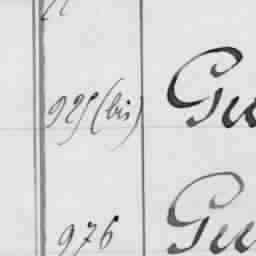 975(bis) Gu
976 Gu